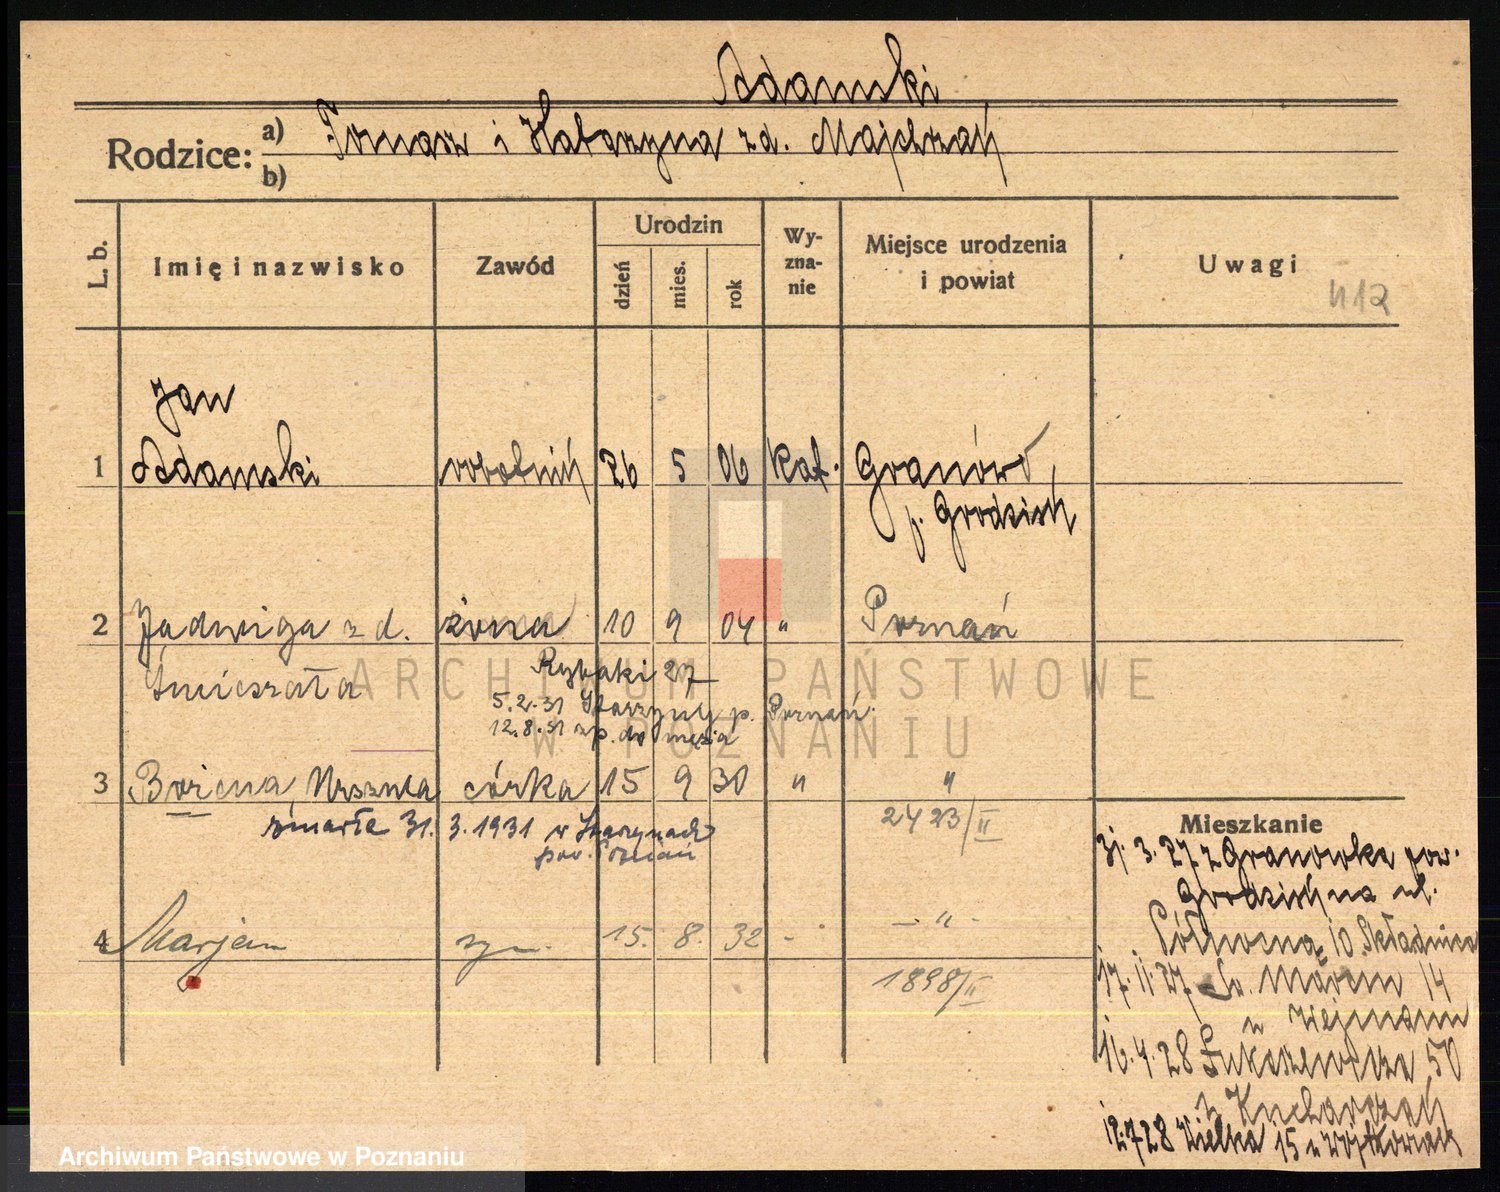 Adamski
Rodzice: a) Tomasz i Katarzyna z d. Majchrzak
b)
L. b. Imię i nazwisko Zawód Urodzin dzień mies. rok Wy-zna-nie Miejsce urodzenia i powiat Uwagi
412
Jan
1 Adamski robotnik 26 5 06 kat. Granówko,
p. Grodzisk
2 Jadwiga z d. żona 10 9 04 " Poznań
Śmieszała Rybaki 27
5.2.31 Starzyny p. Poznań
12.8.31 do męża
3 Bożena, Urszula córka 15 9 30 " "
zmarła 31. 3. 1931 w
pow. Poznań
2423/II
4 Marjan syn 15. 8. 32 - - " -
1898/II
Mieszkanie
31. 3. 27 z Granówka pow.
Grodzisk na ul.
Północna 10. Składnica
17. 11. 27 Św. Marcin 14
u Wejmann
16. 4. 28 Łukaszewicza 50
u Kucharczak
12.7.28 Wielka 15 u Wojtkowiak
ARCHIWUM PAŃSTWOWE
W POZNANIU
Archiwum Państwowe w Poznaniu